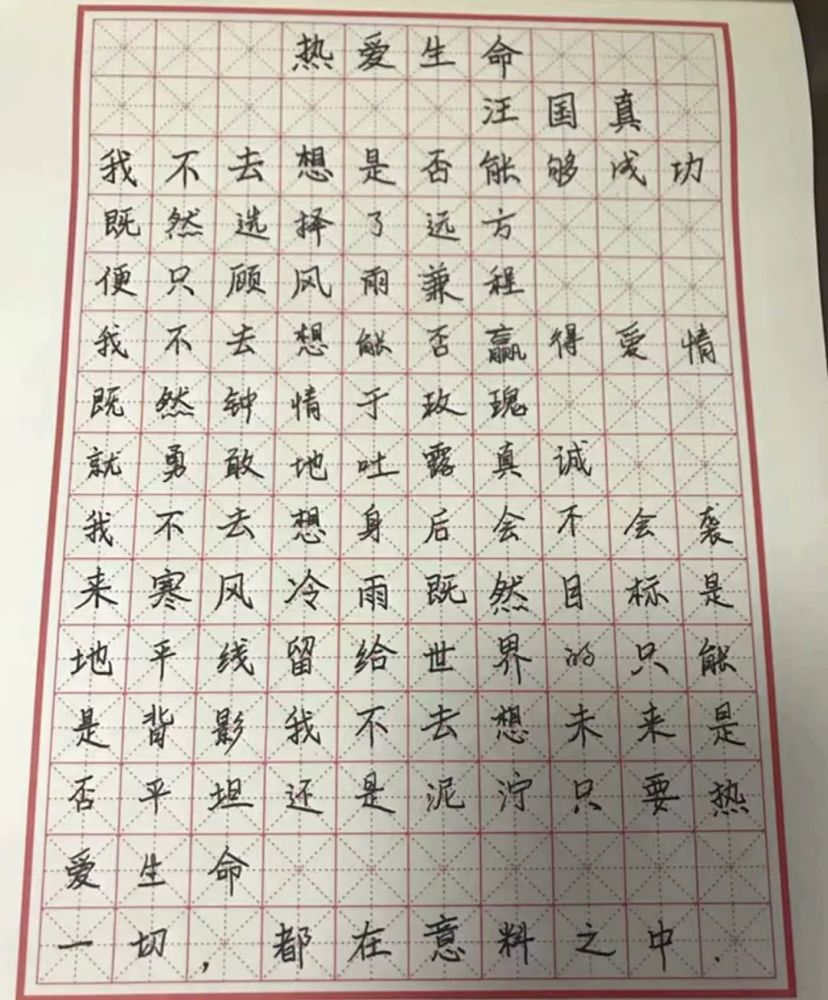 热爱生命
汪国真
我不去想是否能够成功
既然选择了远方
便只顾风雨兼程
我不去想能否赢得爱情
既然钟情于玫瑰
就勇敢地吐露真诚
我不去想身后会不会袭
来寒风冷雨既然目标是
地平线留给世界的只能
是背影我不去想未来是
否平坦还是泥泞只要热
爱生命
一切，都在意料之中.